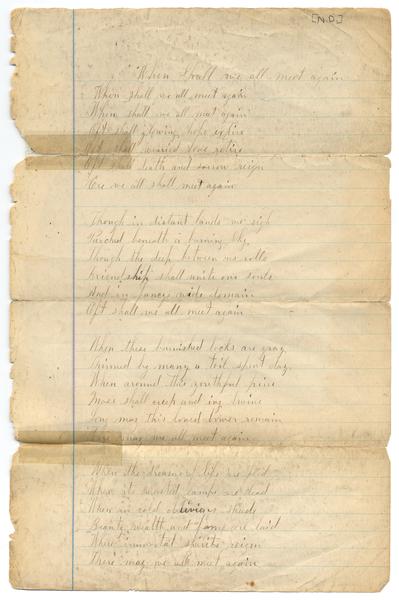 [N.D.]
When shall we all meet again
When shall we all meet again
When shall we all meet again
Oft shall glowing hope expire
Oft shall wearied love retire
Oft shall death and sorrow reign
Ere we all shall meet again
Though in distant lands we sigh
Parched beneath a burning sky
Though the deep between us rolls
Friendship shall unite our souls
And in fancys wide domain
Oft shall we all meet again
When these burnished locks are gray
Thinned by many a toil spent day
When around this youthful pine
Moss shall creep and ivy twine
Long may this loved bower remain
may we all meet again
When the dreams of life are fled
When its wasted lamps are dead
When in cold oblivions shade
Beauty wealth and fame are laid
Where immortal spirits reign
There may we all meet again